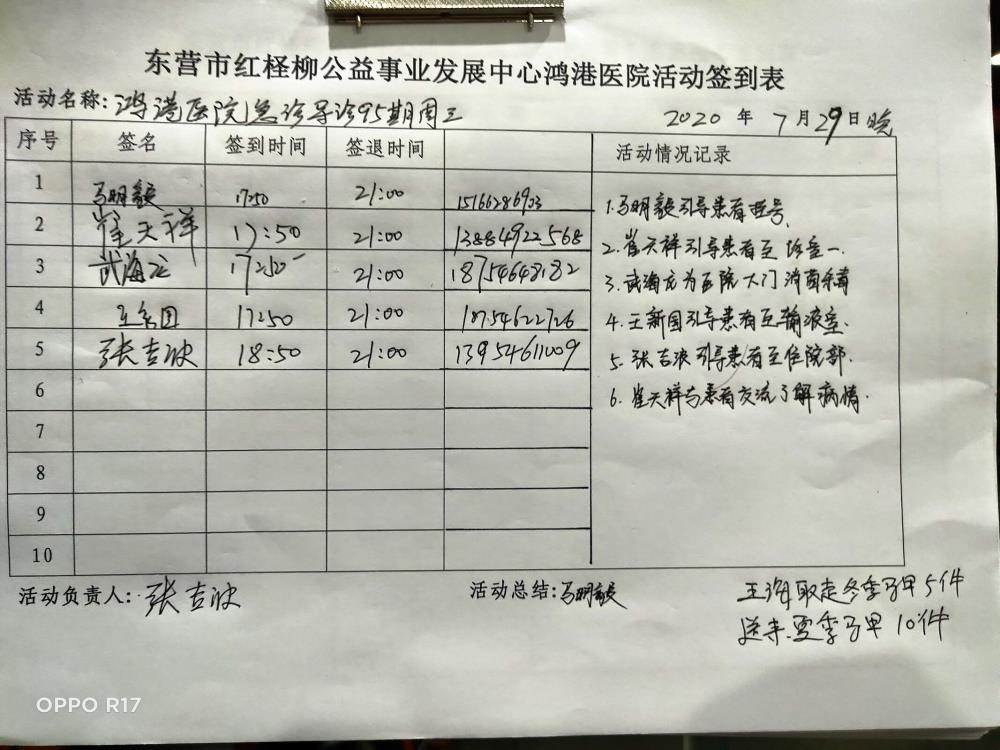 东营市红柽柳公益事业发展中心鸿港医院活动签到表
活动名称:鸿港医院急诊导诊95期周三 2020 年 7 月 29 日晚
序号 签名 签到时间 签退时间 活动情况记录
1 马明毅 1750 21:00 15166286903
2 崔天祥 17:50 21:00 13884922568
3 武海龙 17:50 21:00 18754648182
4 王新国 1750 21:00 18754622726
5 张吉波 18:50 21:00 13954611009
6
7
8
9
10
1.马明毅引导患者挂号,
2.崔天祥引导患者至诊室一.
3.武海龙为医院大门消毒
4.王新国引导患者至输液室.
5.张吉波引导患者至住院部.
6.崔天祥与患者交流了解病情.
活动负责人:张吉波 活动总结:马明毅
王海取走冬季马甲5件
送来夏季马甲10件
OPPO R17